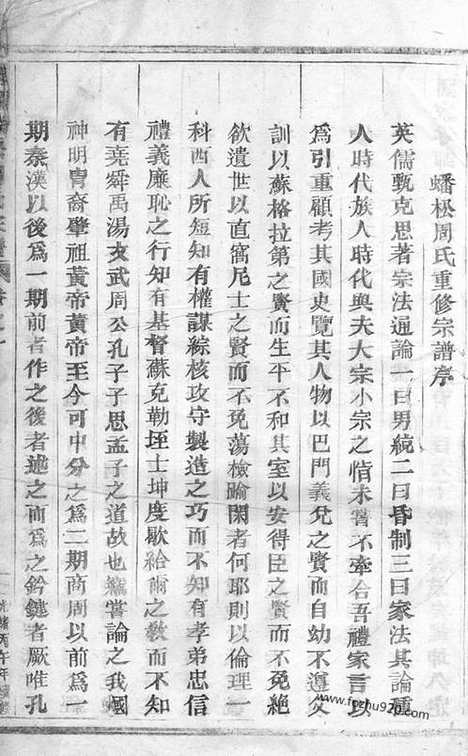 蟠松周氏重修宗譜序
英儒甄克思著宗法通論一曰男統二曰昏制三曰家法其論種
人時代族人時代與夫大宗小宗之情未嘗不牽合吾禮家言以
爲引重顧考其國史覽其人物以巴門義兌之賢而自幼不遵父
訓以蘇格拉第之賢而生平不和其室以安得臣之賢而不免絶
欲遺世以直窩尼士之賢而不免蕩檢踰閑者何耶則以倫理一
科西人所短知有權謀綜核攻守製造之巧而不知有孝弟忠信
禮義廉恥之行知有基督蘇克勒垤士坤度歇給爾之教而不知
有堯舜禹湯文武周公孔子子思孟子之道故也纔嘗論之我國
神明胄裔肇祖黃帝黃帝至今可中分之爲二期商周以前爲一
期秦漢以後爲一期前者作之後者述之而爲之鈐鍵者厥唯孔
www.fopu920.com